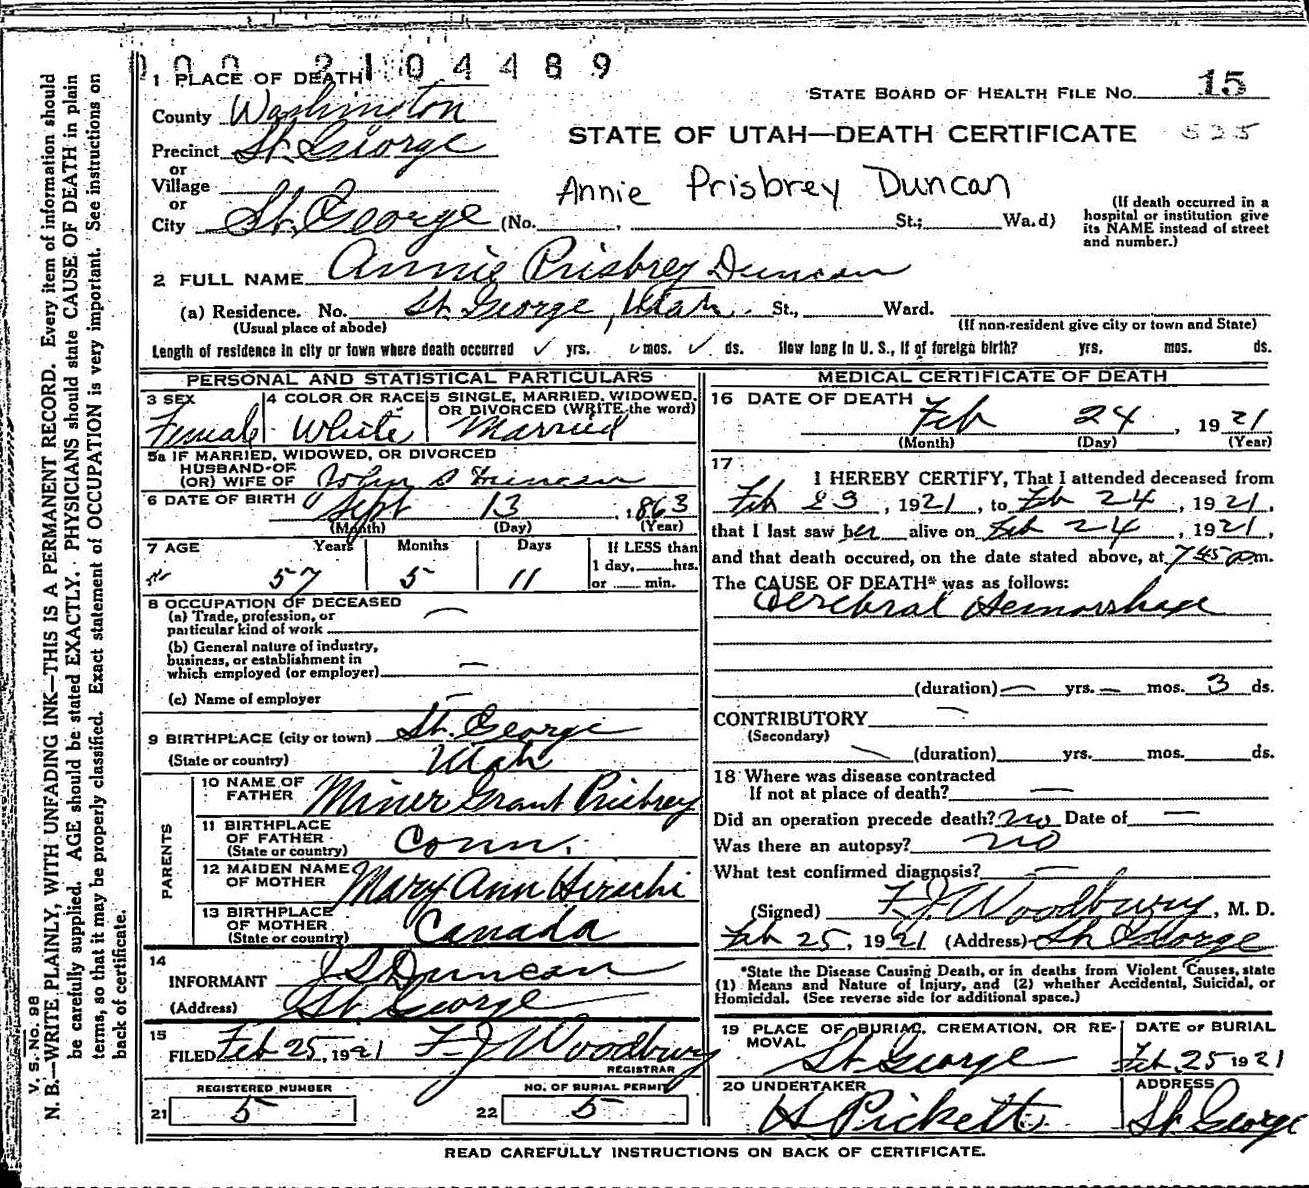 000 2104489
1 PLACE OF DEATH
STATE BOARD OF HEALTH FILE No. 15
County Washington
STATE OF UTAH—DEATH CERTIFICATE 525
Precinct St. George
or
Village
Annie Prisbrey Duncan
or
City St. George (No. , St.; Wa.d)
(If death occurred in a
hospital or institution give
its NAME instead of street
and number.)
2 FULL NAME Annie Prisbrey Duncan
(a) Residence. No. St. George, Utah. St., Ward.
(Usual place of abode)
(If non-resident give city or town and State)
Length of residence in city or town where death occurred ✓ yrs. ✓ mos. ✓ ds. How long in U. S., if of foreign birth? yrs. mos. ds.
PERSONAL AND STATISTICAL PARTICULARS
3 SEX
Female
4 COLOR OR RACE
White
5 SINGLE, MARRIED, WIDOWED,
OR DIVORCED (WRITE the word)
Married
5a IF MARRIED, WIDOWED, OR DIVORCED
HUSBAND OF
(OR) WIFE OF John S Duncan
6 DATE OF BIRTH Sept 13, 1863
(Month) (Day) (Year)
7 AGE Years Months Days
57 5 11
If LESS than
1 day, hrs.
or min.
8 OCCUPATION OF DECEASED
(a) Trade, profession, or
particular kind of work —
(b) General nature of industry,
business, or establishment in
which employed (or employer) —
(c) Name of employer —
9 BIRTHPLACE (city or town) St. George
(State or country) Utah
PARENTS
10 NAME OF
FATHER Miner Grant Prisbrey
11 BIRTHPLACE
OF FATHER
(State or country) Conn.
12 MAIDEN NAME
OF MOTHER Mary Ann Hirschi
13 BIRTHPLACE
OF MOTHER
(State or country) Canada
14
INFORMANT J S Duncan
(Address) St George
15
FILED Feb 25, 1921 F J Woodbury
REGISTRAR
REGISTERED NUMBER
21 5
NO. OF BURIAL PERMIT
22 5
MEDICAL CERTIFICATE OF DEATH
16 DATE OF DEATH
Feb 24, 1921
(Month) (Day) (Year)
17
I HEREBY CERTIFY, That I attended deceased from
Feb 23, 1921, to Feb 24, 1921,
that I last saw her alive on Feb 24, 1921,
and that death occured, on the date stated above, at 7 45 p.m.
The CAUSE OF DEATH* was as follows:
Cerebral Hemorrhage
(duration) — yrs. — mos. 3 ds.
CONTRIBUTORY —
(Secondary)
(duration) yrs. mos. ds.
18 Where was disease contracted
If not at place of death? —
Did an operation precede death? no Date of —
Was there an autopsy? no
What test confirmed diagnosis? —
(Signed) F. J. Woodbury, M. D.
Feb 25, 1921 (Address) St George
*State the Disease Causing Death, or in deaths from Violent Causes, state
(1) Means and Nature of Injury, and (2) whether Accidental, Suicidal, or
Homicidal. (See reverse side for additional space.)
19 PLACE OF BURIAL, CREMATION, OR RE-
MOVAL
St George
DATE OF BURIAL
Feb 25 1921
20 UNDERTAKER
H Pickett
ADDRESS
St. George
READ CAREFULLY INSTRUCTIONS ON BACK OF CERTIFICATE.
V. S. No. 98
N. B.—WRITE PLAINLY, WITH UNFADING INK—THIS IS A PERMANENT RECORD. Every item of information should
be carefully supplied. AGE should be stated EXACTLY. PHYSICIANS should state CAUSE OF DEATH in plain
terms, so that it may be properly classified. Exact statement of OCCUPATION is very important. See instructions on
back of certificate.